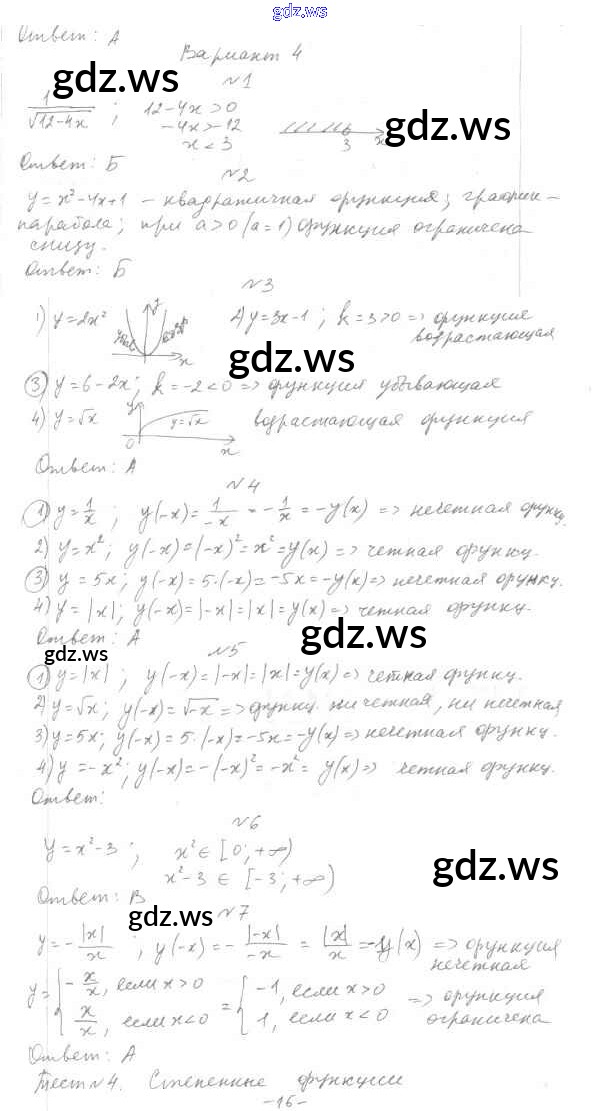 gdz.ws
Ответ: А
Вариант 4
gdz.ws
№1
1/√(12-4x) ; 12-4x>0
-4x>-12
x<3
3 x
gdz.ws
Ответ: Б
№2
y=x²-4x+1 - квадратичная функция; график-
парабола; при a>0 (a=1) функция ограничена
снизу.
Ответ: Б
№3
1) y=2x² y x 2) y=3x-1 ; k=3>0 => функция
возрастающая
gdz.ws
3) y=6-2x; k=-2<0 => функция убывающая
4) y=√x y y=√x 0 x возрастающая функция
Ответ: А
№4
1) y=1/x ; y(-x)=1/-x = -1/x = -y(x) => нечетная функц.
2) y=x²; y(-x)=(-x)²=x²=y(x) => четная функц.
3) y=5x; y(-x)=5·(-x)=-5x=-y(x) => нечетная функц.
4) y=|x|; y(-x)=|-x|=|x|=y(x) => четная функц.
Ответ: А
gdz.ws
gdz.ws
№5
1) y=|x| ; y(-x)=|-x|=|x|=y(x) => четная функц.
2) y=√x; y(-x)=√-x => функц. ни четная, ни нечетная
3) y=5x; y(-x)=5·(-x)=-5x=-y(x) => нечетная функц.
4) y=-x²; y(-x)=-(-x)²=-x²= y(x) => четная функц.
Ответ:
№6
y=x²-3 ; x²∈[0;+∞)
x²-3 ∈ [-3;+∞)
gdz.ws
Ответ: В
gdz.ws
№7
y=-|x|/x ; y(-x)=-|-x|/-x = |x|/x =-y(x) => функция
нечетная
y={ -x/x, если x>0 ={ -1, если x>0 => функция
x/x, если x<0 1, если x<0 ограничена
gdz.ws
Ответ: А
Тест №4. Степенные функции
-16-